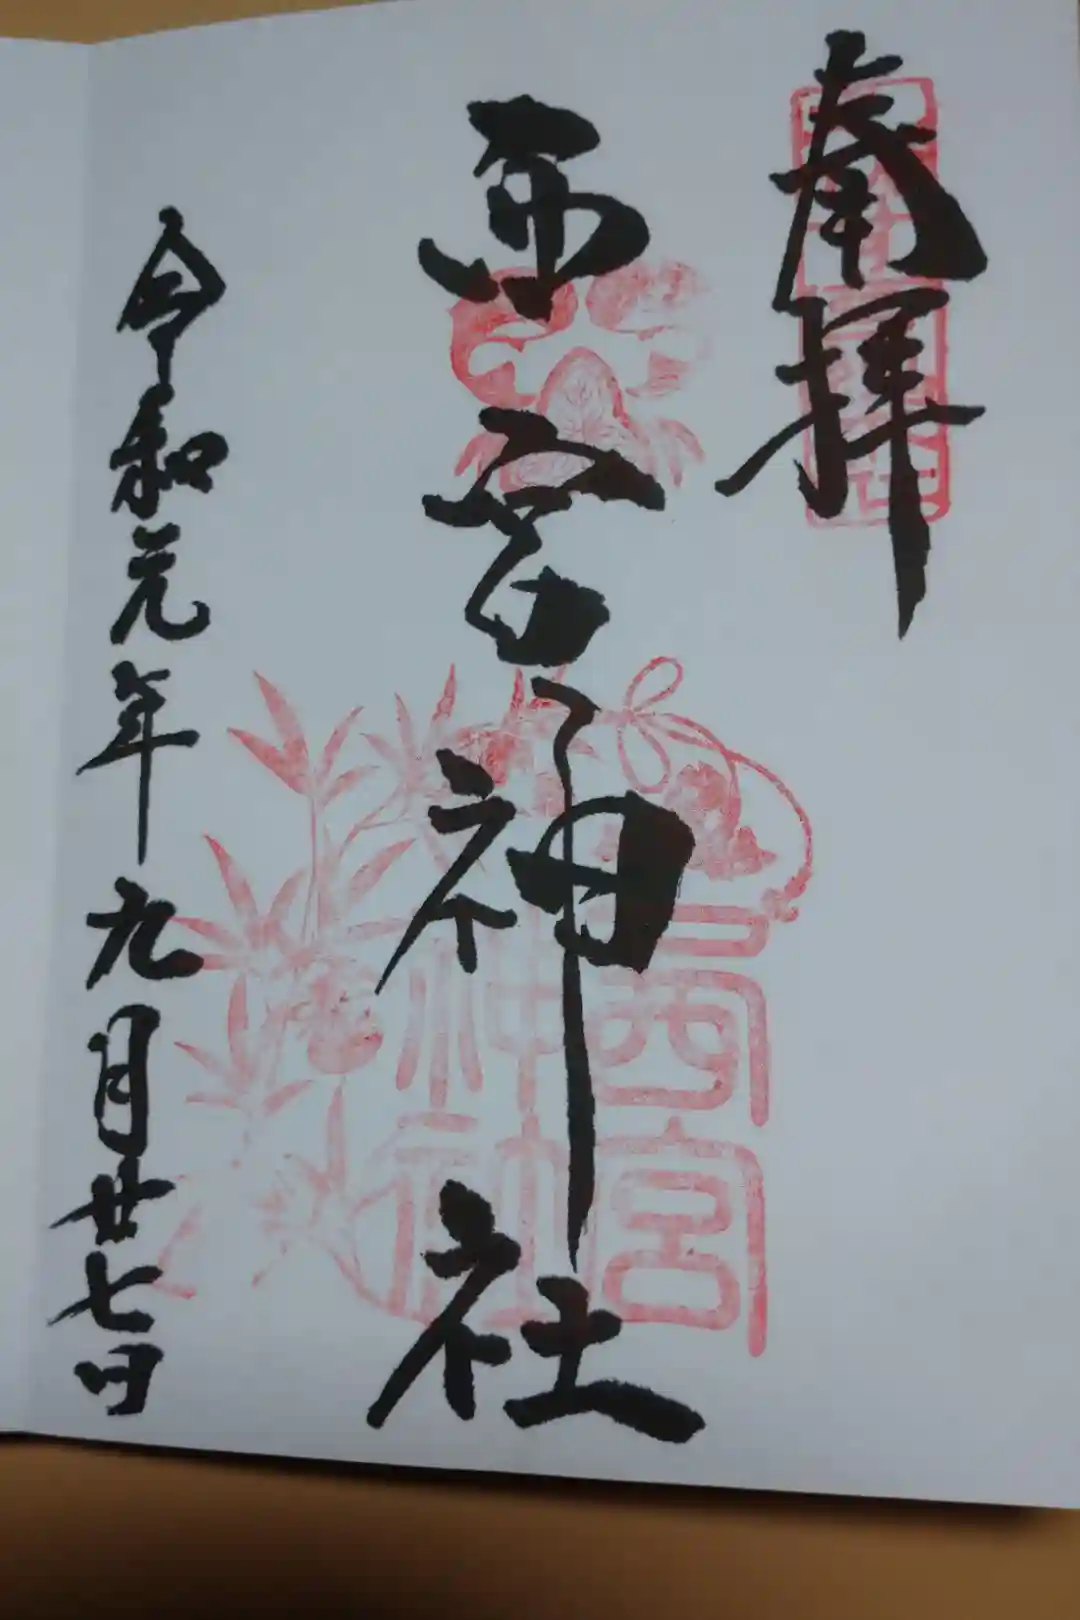 奉拝
西宮神社
令和元年九月廿七日
西宮
神社